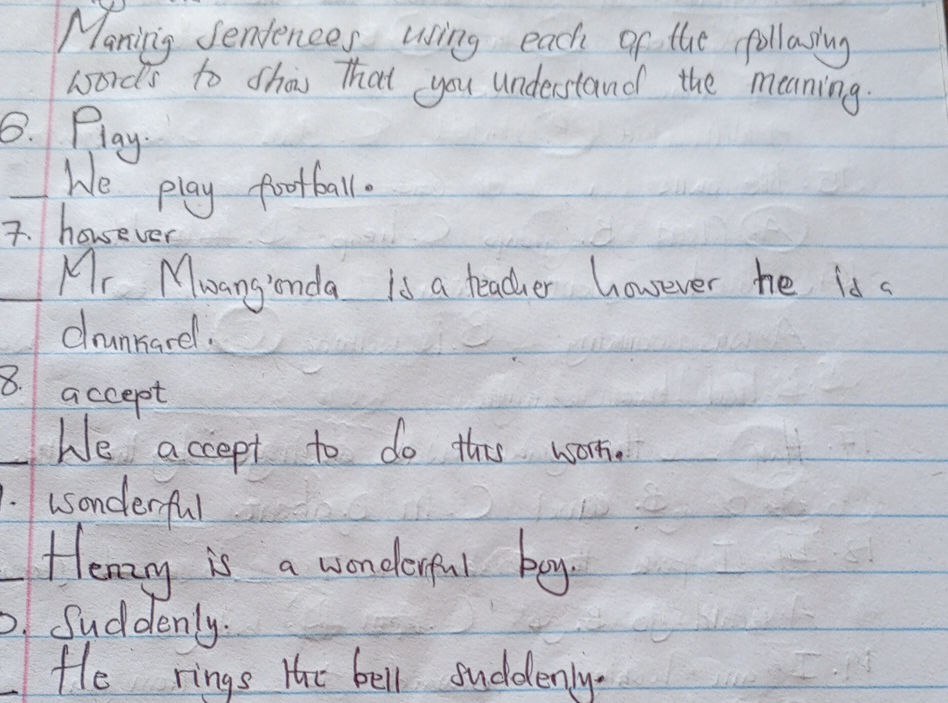 Maning Sentences using each of the following
words to show that you understand the meaning.
6. Play.
We play football.
7. however
Mr Mwang'onda is a teacher however he is a
drunkard.
8. accept
We accept to do this work.
9. wonderful
Henry is a wonderful boy.
0. Suddenly.
He rings the bell suddenly.